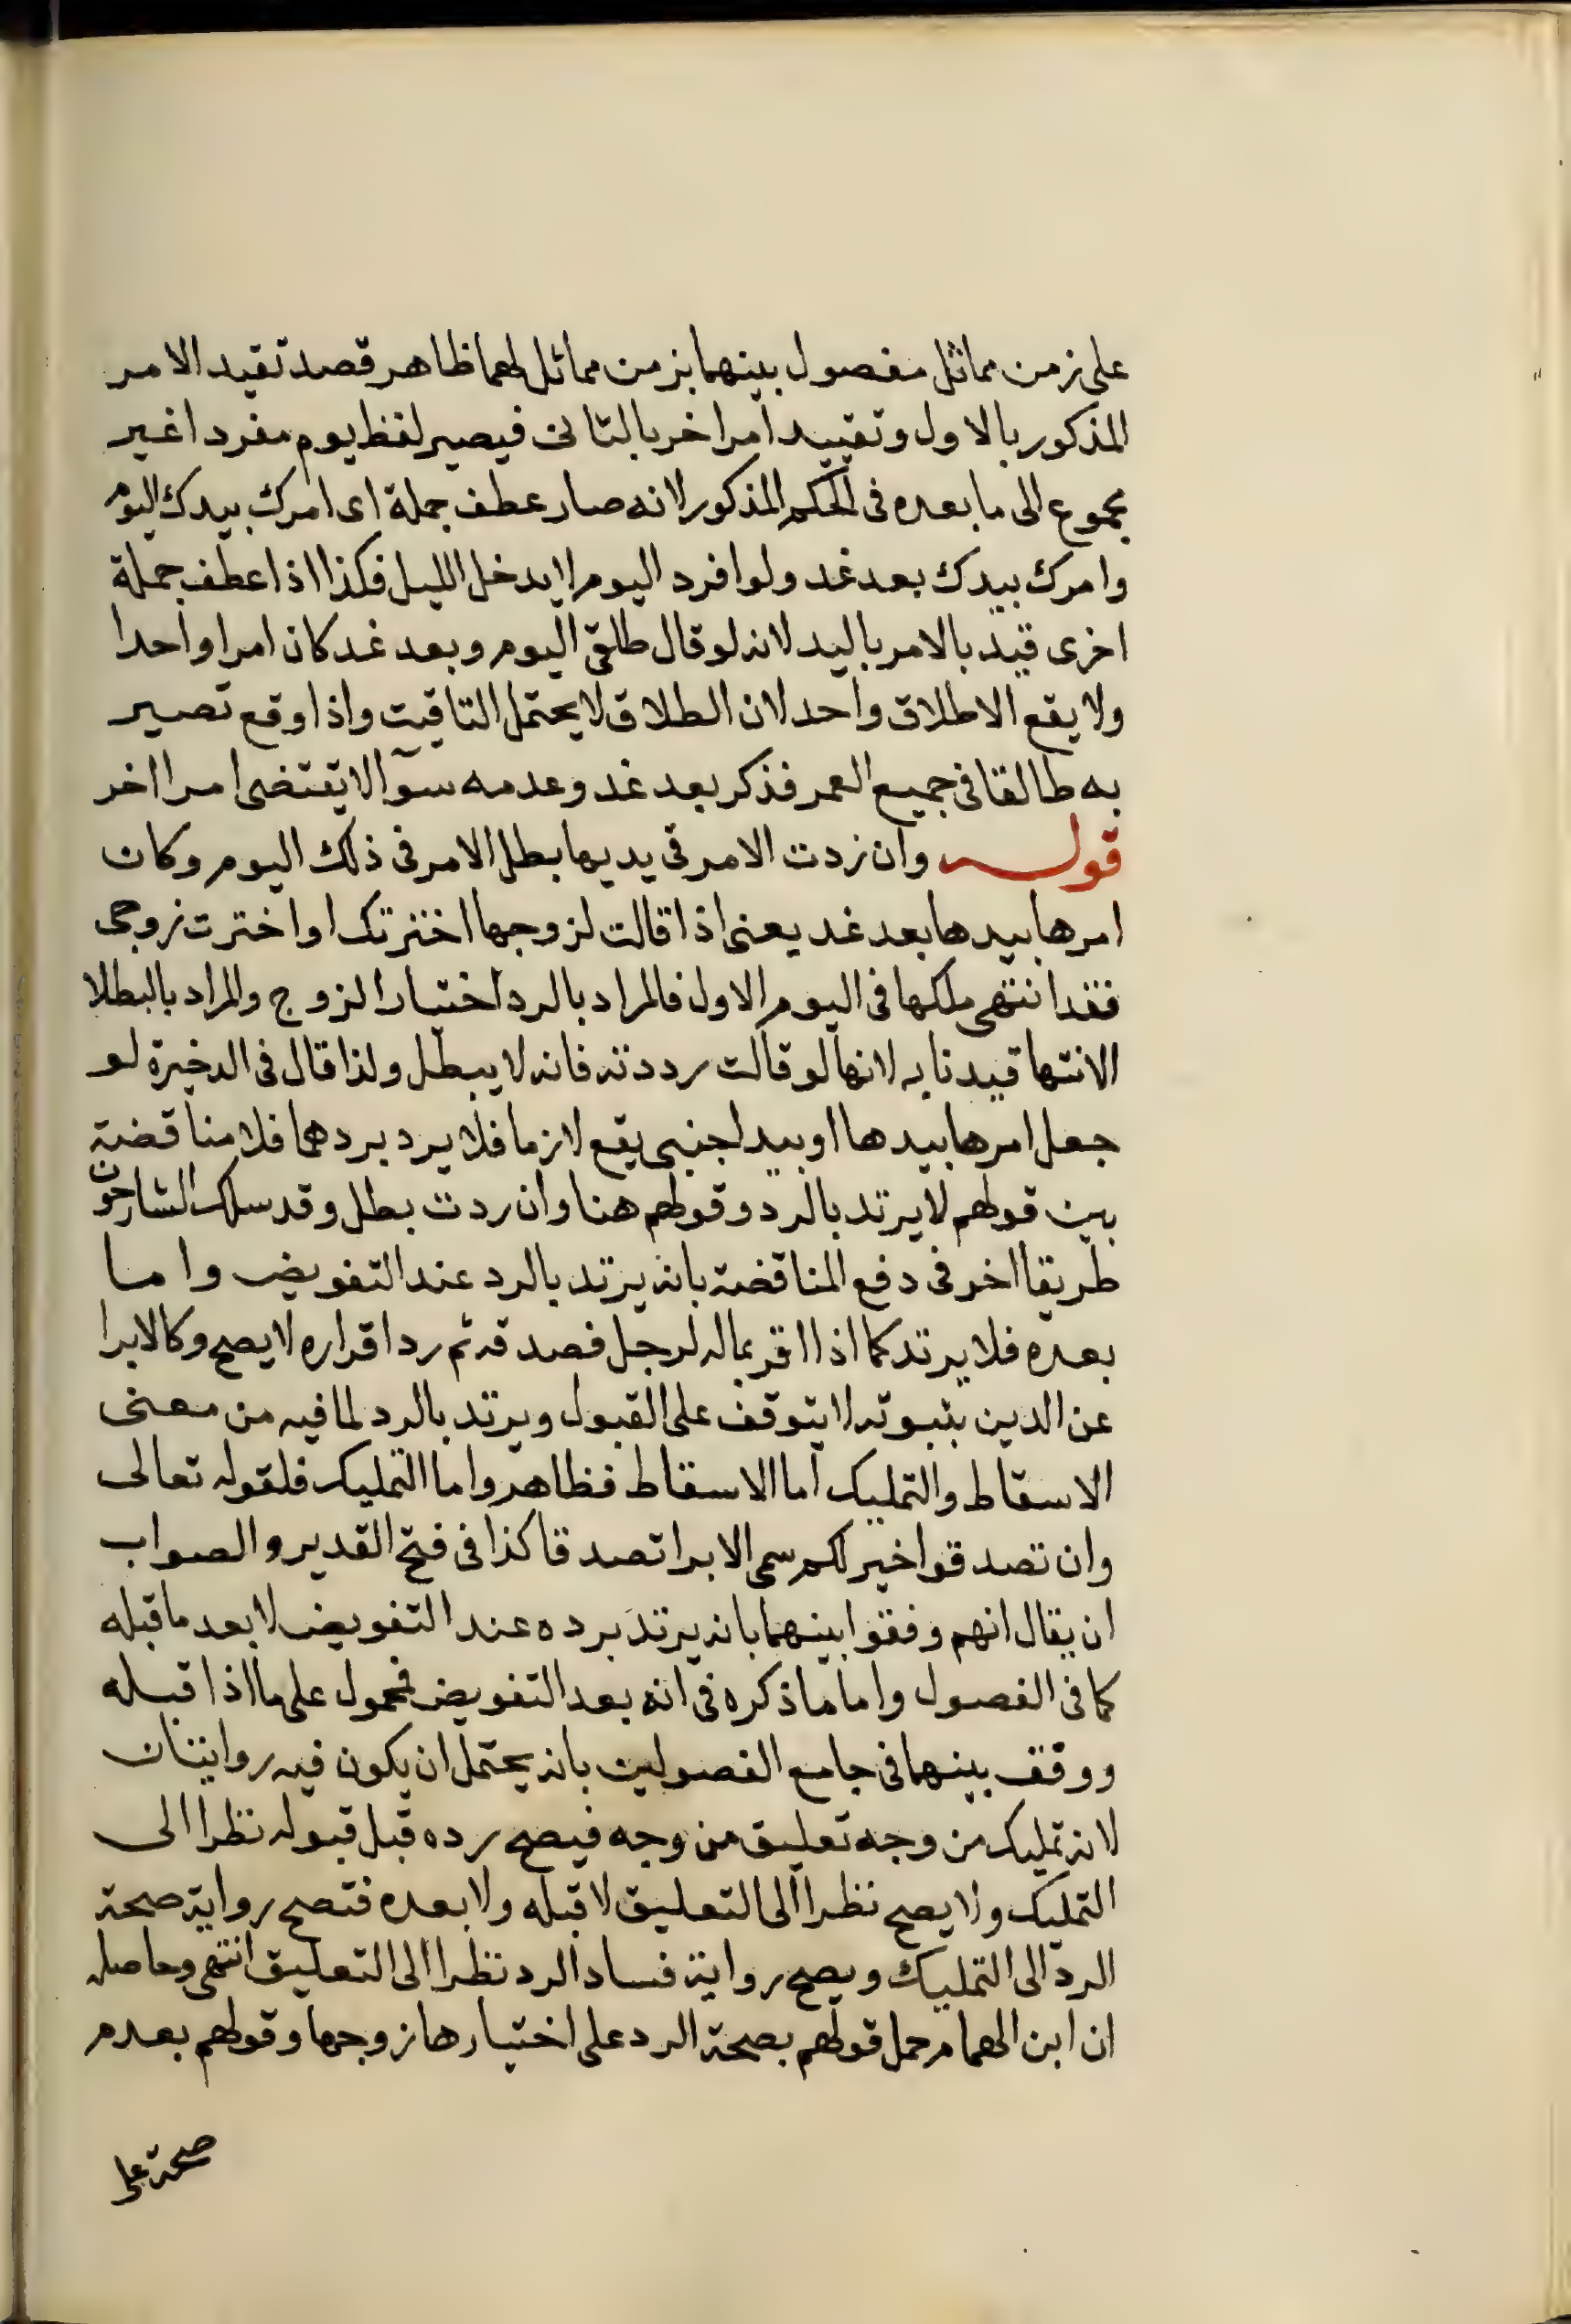 على زمن مماثل مفصول بينهما بزمن مماثل لهما ظاهر قصد تقيد الامر
المذكور بالاول وتقييد امر اخر بالثانى فيصير لفظ يوم مفردا غير
مجموع الى ما بعده فى الحكم المذكور لانه صار عطف جملة اى امرك بيدك اليوم
وامرك بيدك بعد غد ولو افرد اليوم لا يدخل الليل فكذا اذا عطف جملة
اخرى قيد بالامر باليد لانه لو قال طلقى اليوم وبعد غد كان امرا واحدا
ولا يقع الا طلاق واحد لان الطلاق لا يحتمل التاقيت واذا وقع تصير
به طالقا فى جميع العمر فذكر بعد غد وعدمه سوآ لا يقتضى امرا اخر
قوله وان زدت الامر فى يديها بطل الامر فى ذلك اليوم وكان
امرها بيدها بعد غد يعنى اذا قالت لزوجها اخترتك او اخترت زوجى
فقد انتهى ملكها فى اليوم الاول فالمراد بالرد اختيار الزوج والمراد بالبطلا
الانتها قيدنا به لانها لو قالت رددته فانه لا يبطل ولذا قال فى الدخيرة لو
جعل امرها بيدها او بيد اجنبى يقع لازما فلا يرد بردهما فلا مناقضة
بين قولهم لا يرتد بالرد وقولهم هنا وان ردت بطل وقد سلك الشارحون
طريقا اخر فى دفع المناقضة بانه يرتد بالرد عند التفويض واما
بعده فلا يرتد كما اذا اقر بماله لرجل فصدقه ثم رد اقراره لا يصح وكالابرا
عن الدين بثبوته لا يتوقف على القبول ويرتد بالرد لما فيه من معنى
الاسقاط والتمليك اما الاسقاط فظاهر واما التمليك فلقوله تعالى
وان تصدقوا خير لكم سمى الابرا تصدقا كذا فى فتح القدير والصواب
ان يقال انهم وفقوا بينهما بانه يرتد برده عند التفويض لا بعد ما قبله
كما فى الفصول واما ما ذكره فى انه بعد التفويض فمحمول على ما اذا قبله
ووقف بينهما فى جامع الفصولين بانه يحتمل ان يكون فيه روايتان
لانه تمليك من وجه تعليق من وجه فيصح رده قبل قبوله نظرا الى
التمليك ولا يصح نظرا الى التعليق لا قبله ولا بعده فتصح رواية صحة
الرد الى التمليك ويصح رواية فساد الرد نظرا الى التعليق انتهى وحاصله
ان ابن الهمام حمل قولهم بصحة الرد على اختيارها زوجها وقولهم بعدم
صحته على